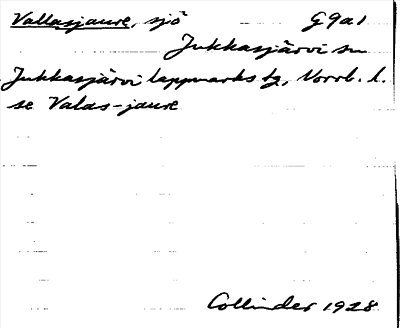 Vallasjaure, sjö G9a1
Jukkasjärvi sn
Jukkasjärvi lappmarks tg, Norrb. l.
se Valas-jaure
Collinder 1928